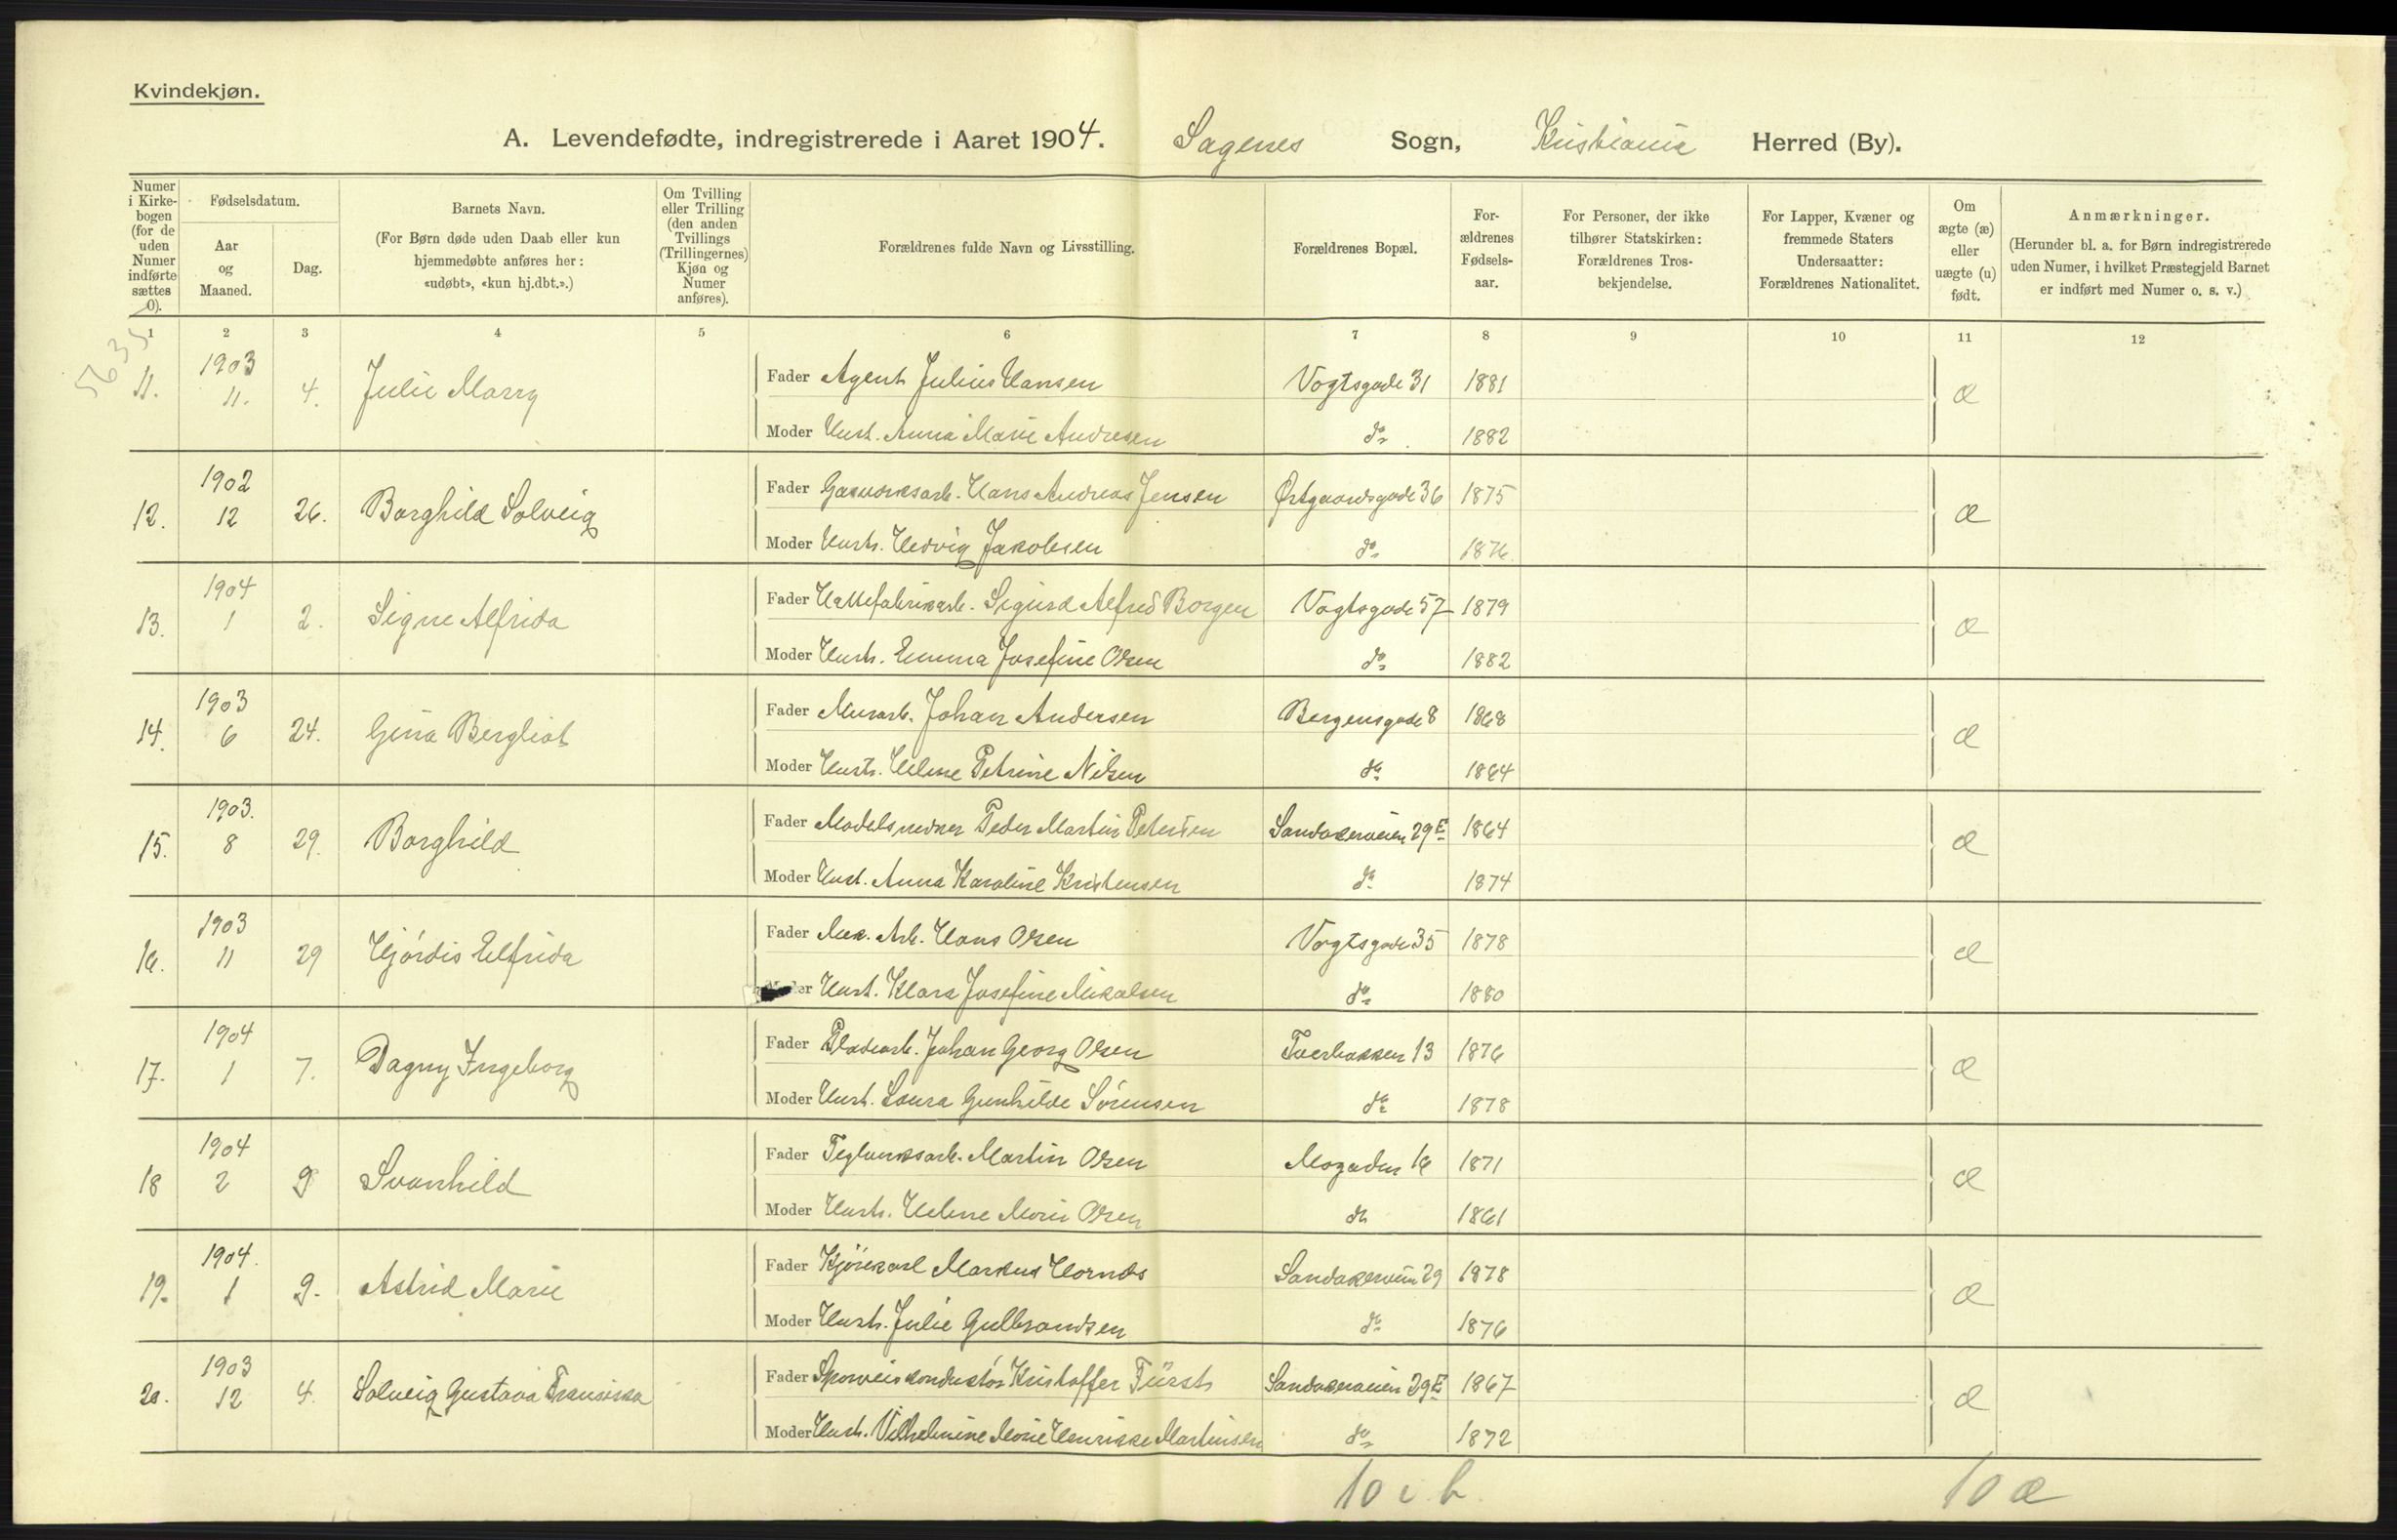 Kvindekjøn.
A. Levendefødte, indregistrerede i Aaret 1904. Sagenes Sogn, Kristiania Herred (By).
Numer i Kirkebogen (for de uden Numer indførte sættes 0).
Fødselsdatum.
Aar og Maaned.
Dag.
Barnets Navn.
(For Børn døde uden Daab eller kun hjemmedøbte anføres her: «udøbt», «kun hj.dbt.».)
Om Tvilling eller Trilling (den anden Tvillings (Trillingernes) Kjøn og Numer anføres).
Forældrenes fulde Navn og Livsstilling.
Forældrenes Bopæl.
Forældrenes Fødselsaar.
For Personer, der ikke tilhører Statskirken: Forældrenes Trosbekjendelse.
For Lapper, Kvæner og fremmede Staters Undersaatter: Forældrenes Nationalitet.
Om ægte (æ) eller uægte (u) født.
Anmærkninger.
(Herunder bl. a. for Børn indregistrerede uden Numer, i hvilket Præstegjeld Barnet er indført med Numer o. s. v.)
1 2 3 4 5 6 7 8 9 10 11 12
5635
11. 1903 11. 4. Julie Marry Fader Agent Julius Hansen Vogtsgade 31 1881 æ
Moder Hust. Anna Marie Andresen do 1882
12. 1902 12 26. Borghild Solveig Fader Gasverksarb. Hans Andreas Jensen Østgaardsgade 36 1875 æ
Moder Hustr. Hedvig Jakobsen do 1876.
13. 1904 1 2. Signe Alfrida Fader Hattefabrikarb. Sigurd Alfred Borgen Vogtsgade 57 1879 æ
Moder Hustr. Emma Josefine Olsen do 1882
14. 1903 6 24. Gina Bergliot Fader Murarb. Johan Andersen Bergensgade 8 1868 æ
Moder Hustr. Helene Petrine Nilsen do 1864
15. 1903. 8 29. Borghild Fader Modelsnedker Peder Martin Petersen Sandakerveien 29E 1864 æ
Moder Hust. Anna Karoline Kristensen do 1874
16. 1903 11 29 Hjördis Elfrida Fader Mek. Arb. Hans Olsen Vogtsgade 35 1878 æ
Moder Hust. Klara Josefine Mikalsen do 1880
17. 1904 1 7. Dagny Ingeborg Fader Pladearb. Johan Georg Olsen Tverbakken 13 1876 æ
Moder Hust. Laura Gunhilde Sörensen do 1878
18 1904 2 9 Svanhild Fader Teglverksarb. Martin Olsen Mogaden 16 1871 æ
Moder Hustr. Helene Marie Olsen do 1861
19. 1904. 1 9. Astrid Marie Fader Kjörekarl Markus Hornäs Sandakerveien 29 1878 æ
Moder Hustr. Julie Gulbrandsen do 1876
20. 1903 12 4. Solveig Gustava Fransiska Fader Sporveiskonduktör Kristoffer Fürst Sandakerveien 29E 1867 æ
Moder Hust. Vilhelmine Marie Henrikke Martinsen do 1872
10 i b. 10 æ